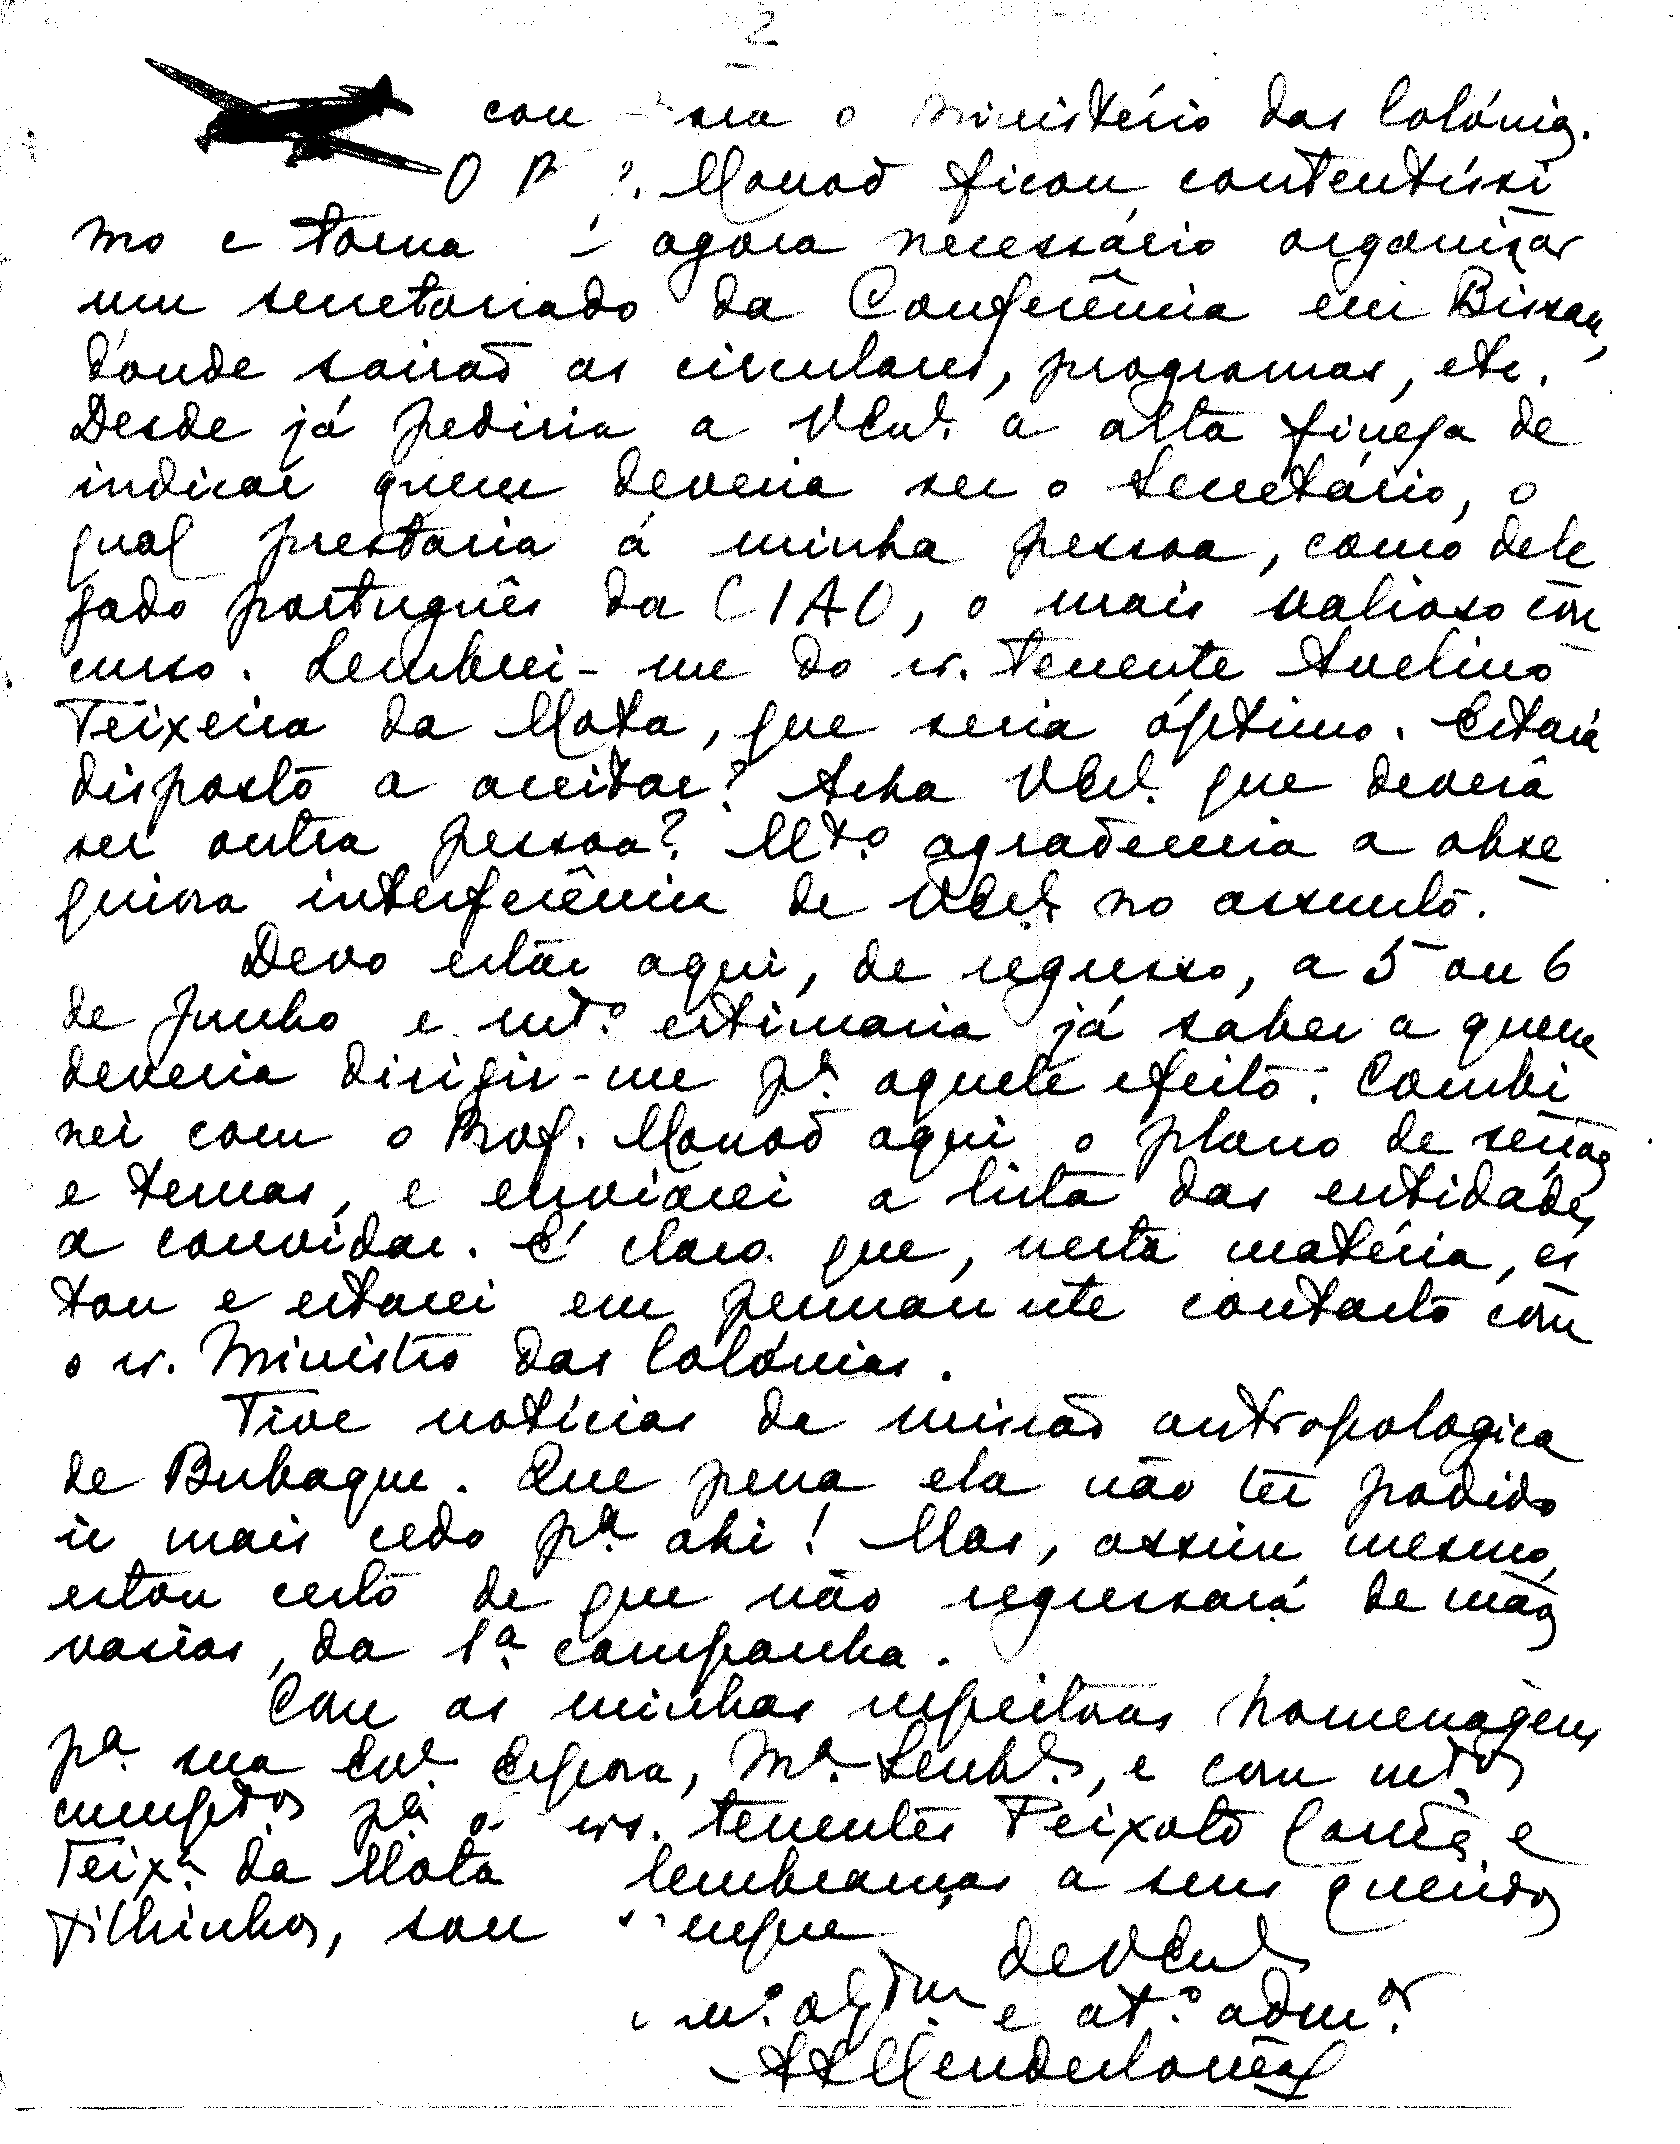 2
o Ministério das Colónias.
O Monod ficou contentíssi
mo e torna agora necessário organizar
um secretariado da Conferência em Bissau,
d'onde sairão as circulares, programas, etc.
Desde já pediria a VExª. a alta fineza de
indicar quem deveria ser o Secretário, o
qual prestaria á minha pessoa, como dele
gado português da CIAO, o mais valioso con
curso. Lembrei-me do sr. tenente Avelino
Teixeira da Mota, que seria óptimo. Estará
disposto a aceitar? Acha VExª. que deverá
ser outra pessoa? Mtº. agradeceria a obse
quiosa interferência de VExª. no assunto.
Devo estar aqui, de regresso, a 5 ou 6
de Junho e mtº. estimaria já saber a quem
deveria dirigir-me pª. aquele efeito. Combi
nei com o Prof. Monod aqui o plano de secções
e temas, e enviarei a lista das entidades
a convidar. É claro que, nesta matéria, es
tou e estarei em permanente contacto com
o sr. Ministro das Colónias.
Tive notícias da missão antropologica
de Bubaque. Que pena ela não ter podido
ir mais cedo pª. ahi! Mas, assim mesmo,
estou certo de que não regressará de mãos
vasias, da 1ª. campanha.
Com as minhas respeitosas homenagens
pª. sua Exª. Esposa, Mª. Senhª., e com mtos
cumptos pª. os srs. tenentes Peixoto Corrêa e
Teixª. da Mota lembranças a seus queridos
filhinhos, sou sempre
de VExª.
e atº. admor.
AAMendesCorrêa